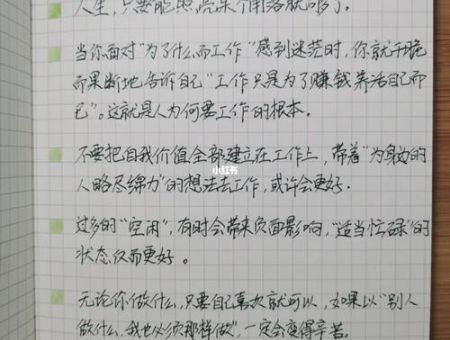 人生，只要能照亮某个角落就够了。
当你面对“为了什么而工作”感到迷茫时，你就干脆
而果断地告诉自己“工作只是为了赚钱养活自己而
已”。这就是人为何要工作的根本。
不要把自我价值全部建立在工作上，带着“为身边的
人略尽绵力”的想法去工作，或许会更好。
小红书
过多的“空闲”，有时会带来负面影响，“适当忙碌”的
状态反而更好。
无论你做什么，只要自己喜欢就可以，如果以“别人
做什么，我也必须那样做”，一定会变得辛苦。